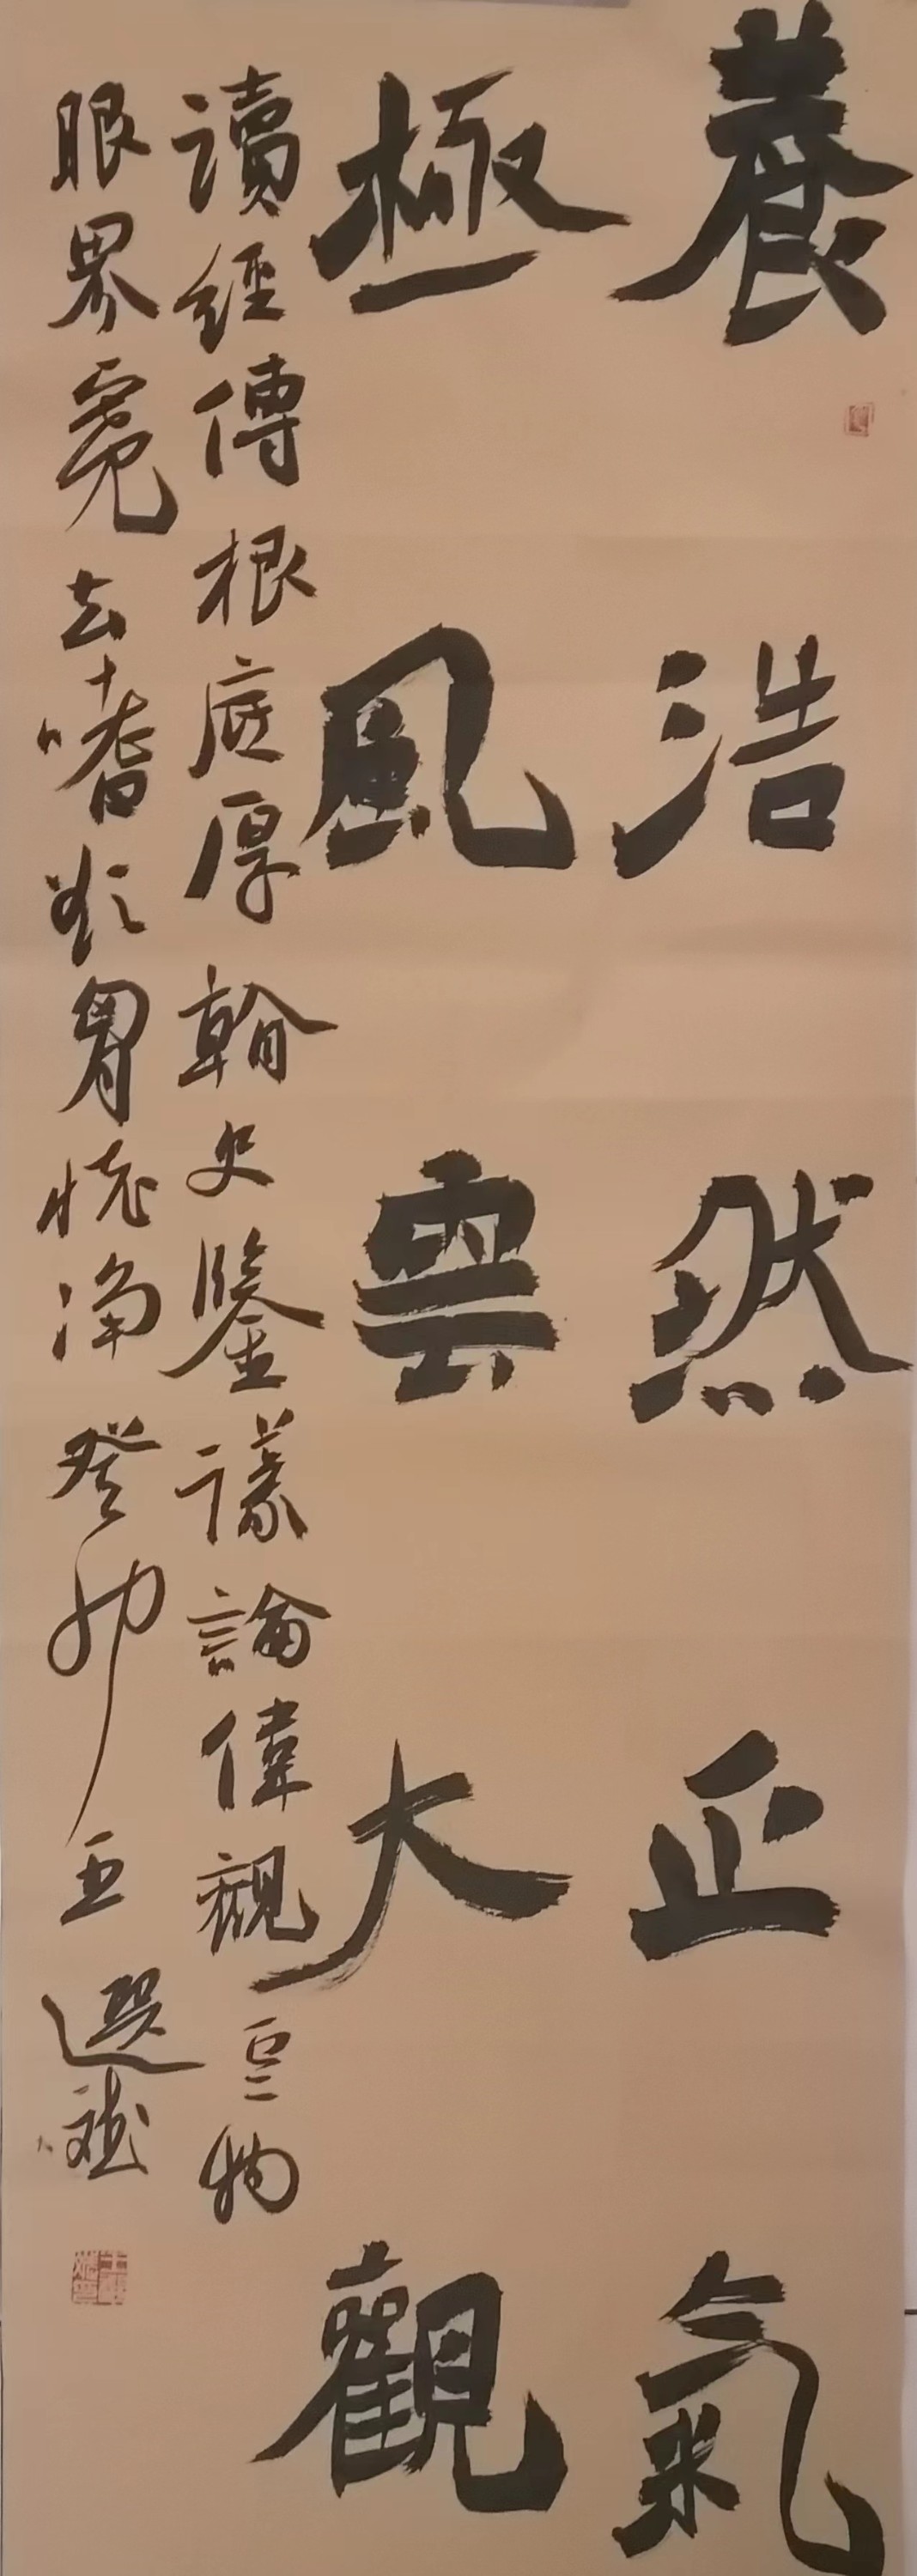 養浩然正氣
極風雲大觀
讀經傳根底厚看史鑒議論偉觀云物
眼界寬去嗜欲胸懷淨癸卯王選斌